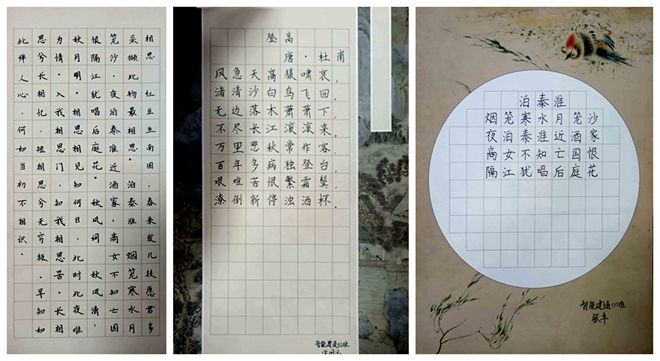 相思 红豆生南国，春来发几枝。愿君多
采撷此物最相思。泊秦淮 烟笼寒水月
笼沙，夜泊秦淮近酒家。商女不知亡国
恨，隔江犹唱后庭花。秋风词 秋风清，
秋月明，相思相见知何日，此时此夜难
为情。入我相思门，知我相思苦，长相
思兮长相忆，短相思兮无穷极，早知如
此绊人心，何如当初不相识。
登高
唐·杜甫
风急天高猿啸哀，
渚清沙白鸟飞回。
无边落木萧萧下，
不尽长江滚滚来。
万里悲秋常作客，
百年多病独登台。
艰难苦恨繁霜鬓，
潦倒新停浊酒杯。
智能建造
泊秦淮
烟笼寒水月笼沙
夜泊秦淮近酒家
商女不知亡国恨
隔江犹唱后庭花
智能建造(1)班